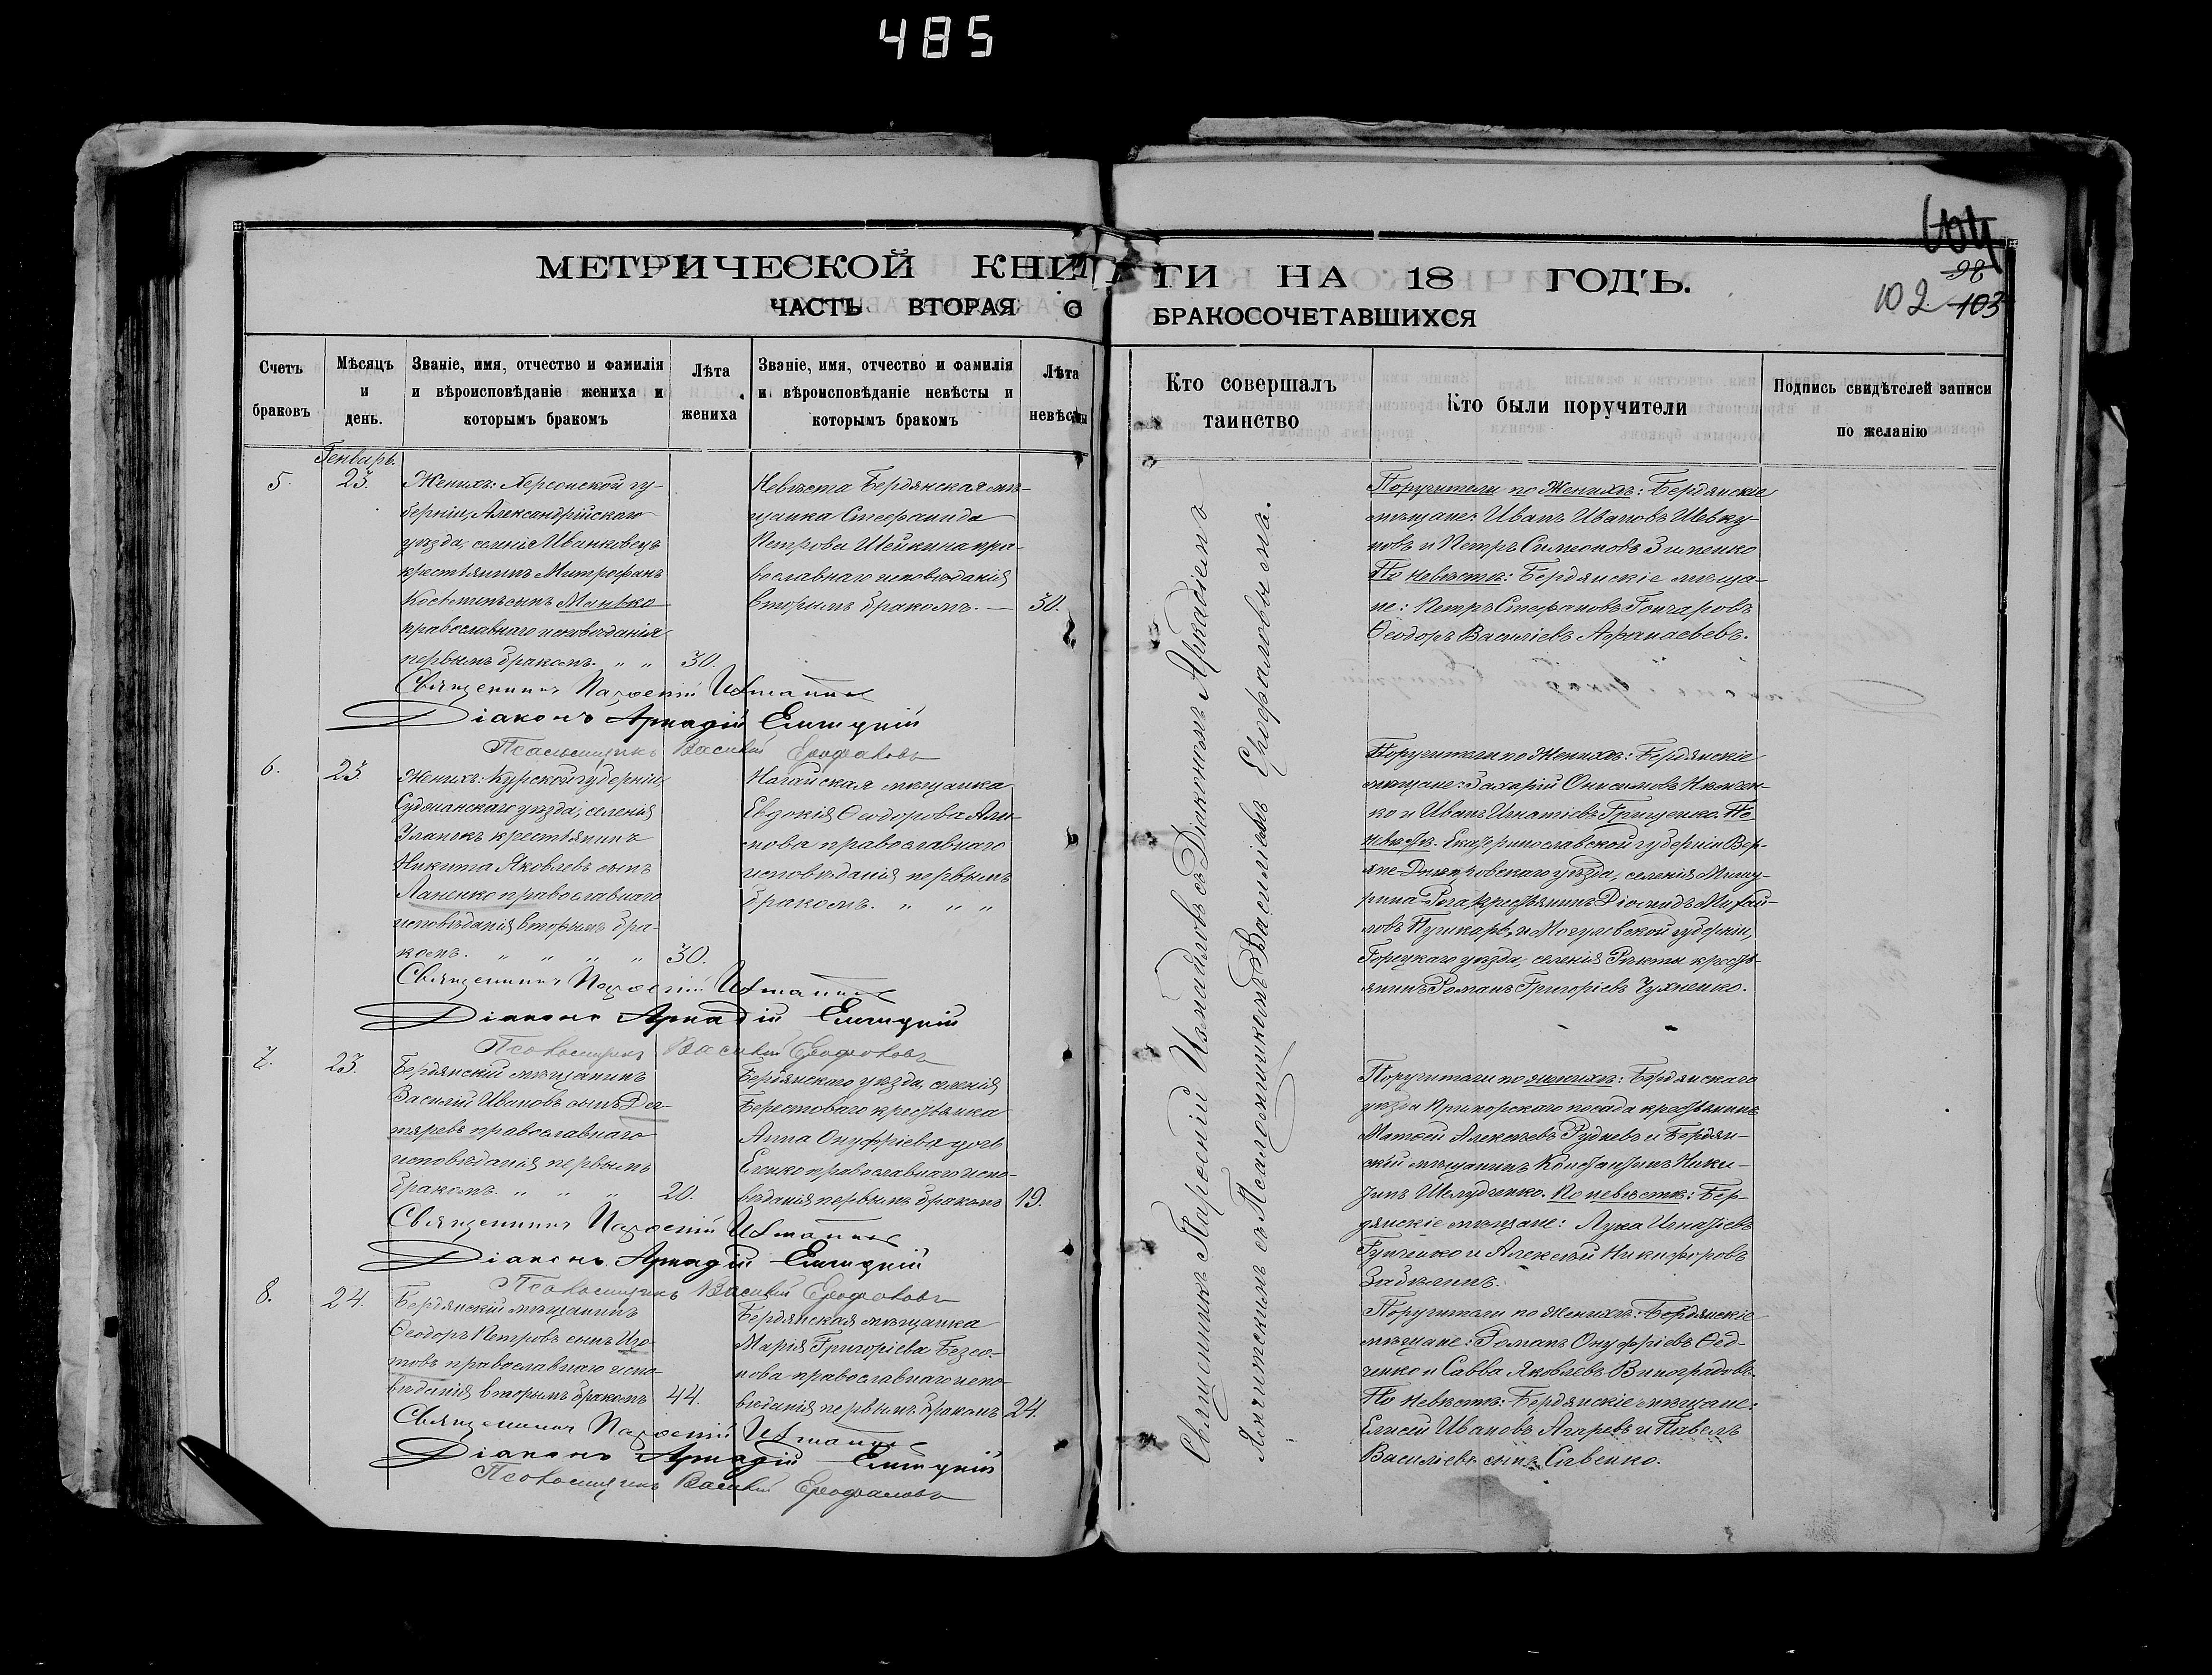 485
604
98
102 103
МЕТРИЧЕСКОЙ КНИГИ НА 18 ГОДЪ.
ЧАСТЬ ВТОРАЯ О БРАКОСОЧЕТАВШИХСЯ
Счетъ браковъ
Мѣсяцъ и день.
Званіе, имя, отчество и фамилія и вѣроисповѣданіе жениха и которымъ бракомъ
Лѣта жениха
Званіе, имя, отчество и фамилія и вѣроисповѣданіе невѣсты и которымъ бракомъ
Лѣта невѣсты
Кто совершалъ таинство
Кто были поручители
Подпись свидѣтелей записи по желанію
Генварь.
5. 23.
Женихъ: Херсонской гу-
берніи, Александрійскаго
уѣзда, селенія Иванковецъ
крестьянинъ Митрофанъ
сынъ
православнаго исповѣданія
первымъ бракомъ. " " 30.
Невѣста Бердянская мѣ-
щанка Стефанида
Петрова Шейкина пра-
вославнаго исповѣданія
вторымъ бракомъ. — 30.
Поручители по Женихѣ: Бердянскіе
мѣщане: Иванъ Ивановъ Шевку-
новъ и Петръ Симеоновъ Зиненко
По невѣстѣ: Бердянскіе мѣща-
не: Петръ Стефановъ Гончаровъ
Ѳеодоръ Василіевъ Афанасьевъ.
Священникъ Пароєній
Діаконъ Аркадій
Псаломщикъ Василій Ерофаловъ
6. 23
Женихъ: Курской губерніи,
Суджанскаго уѣзда, селенія
Уланокъ крестьянинъ
Никита Яковлевъ сынъ
Лапенко православнаго
исповѣданія вторымъ бра-
комъ. " " " " 30.
Ногайская мѣщанка
Евдокія Ѳеодорова
православнаго
исповѣданія первымъ
бракомъ. " " "
Поручители по Женихѣ: Бердянскіе
мѣщане: Захарій Онисимовъ
и Иванъ Игнатіевъ Грищенко. По
невѣстѣ. Екатеринославской губерніи Вер-
хне-Днѣпровскаго уѣзда, селенія Мишу-
рина-Рога, крестьянинъ Діомидъ Михай-
ловъ Пушкарь, и Могилевской губерніи,
Горецкаго уѣзда, селенія крестья-
янинъ Романъ Григоріевъ Чухненко.
Священникъ Пароєній
Діаконъ Аркадій
Псаломщикъ Василій Ерофаловъ
7. 23.
Бердянскій мѣщанинъ
Василій Ивановъ сынъ Дег-
тяревъ православнаго
исповѣданія первымъ
бракомъ. " " " 20.
Бердянскаго уѣзда, селенія
Берестоваго крестьянка
Анна Онуфріева дочь
Еленко православнаго испо-
вѣданія первымъ бракомъ 19.
Поручители по женихѣ: Бердянскаго
уѣзда Приморскаго посада крестьянинъ
Матѳей Алексѣевъ Рудневъ и Бердян-
скій мѣщанинъ Константинъ Ники-
тинъ Шелудченко. По невѣстѣ: Бер-
дянскіе мѣщане: Лука Игнатіевъ
и Алексѣй Никифоровъ
Священникъ Пароєній
Діаконъ Аркадій
Псаломщикъ Василій Ерофаловъ
8. 24.
Бердянскій мѣщанинъ
Ѳеодоръ Петровъ сынъ Изо-
товъ православнаго испо-
вѣданія вторымъ бракомъ 44.
Бердянская мѣщанка
Марія Григоріева Безсо-
нова православнаго испо-
вѣданія первымъ бракомъ 24.
Поручители по Женихѣ: Бердянскіе
мѣщане: Романъ Онуфріевъ Ѳед-
ченко и Савва Яковлевъ Виноградовъ.
По Невѣстѣ: Бердянскіе мѣщане:
Елисей Ивановъ Агаревъ и Павелъ
Василіевъ сынъ Савенко.
Священникъ Пароєній
Діаконъ Аркадій
Псаломщикъ Василій Ерофаловъ
Священникъ Пароєній съ Діакономъ Аркадіемъ
съ Псаломщикомъ Василіемъ Ерофаловымъ.